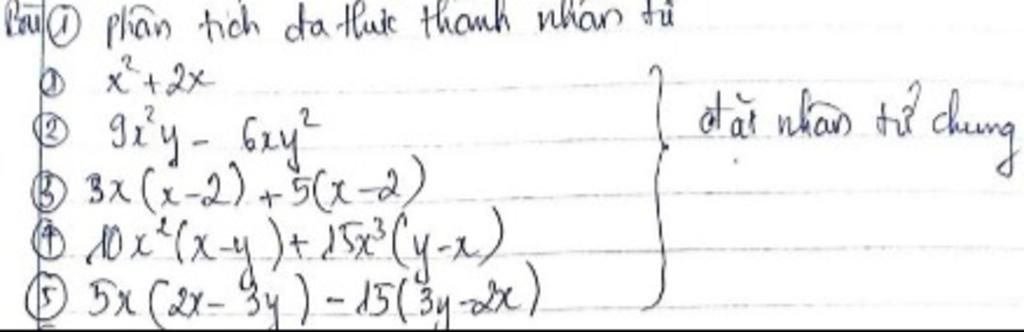 Bài ① phân tích đa thức thành nhân tử
① x² + 2x
② 9x²y - 6xy²
③ 3x(x-2) + 5(x-2)
④ 10x²(x-y) + 15x³(y-x)
⑤ 5x(2x-3y) - 15(3y-2x)
đặt nhân tử chung